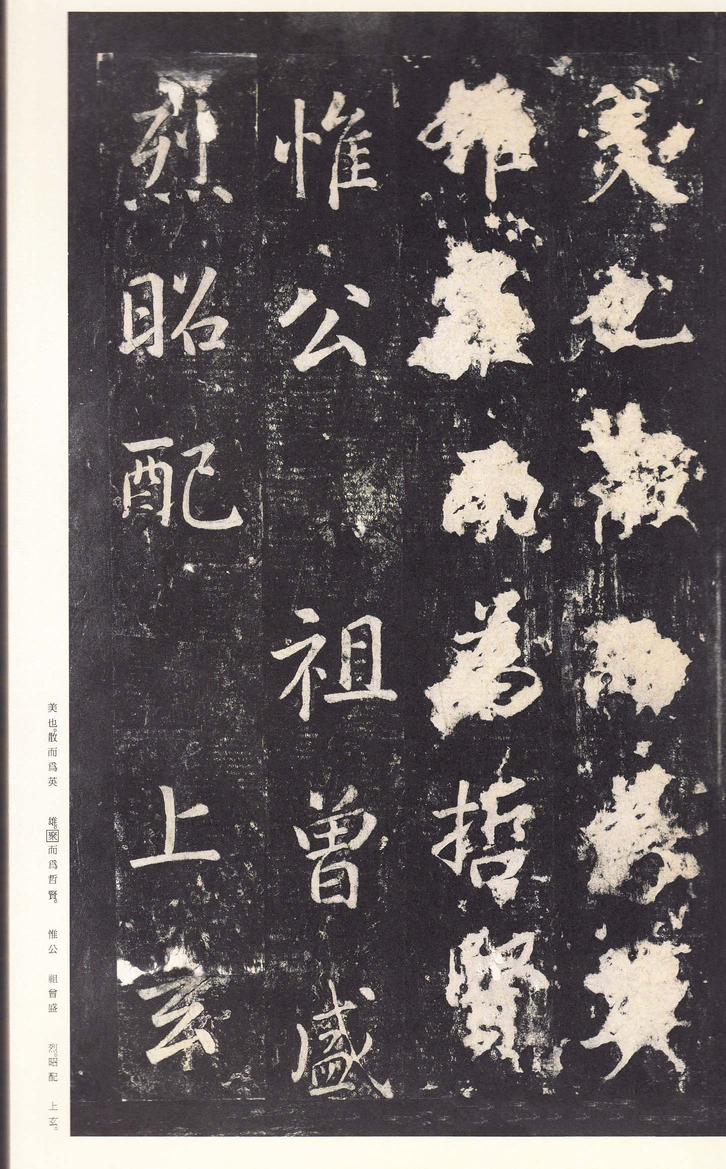 美也散而為英
雄聚而為哲賢
惟公 祖曽盛
烈昭配 上玄
美也。散而爲英 雄。聚而爲哲賢。 惟公 祖曾盛 烈。昭配 上玄。